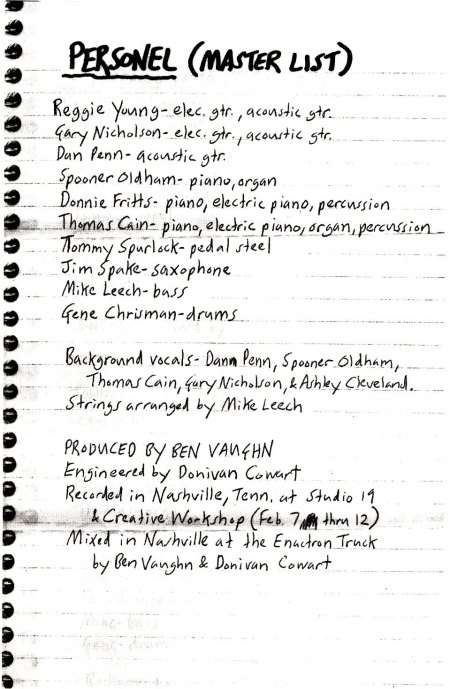 PERSONEL (MASTER LIST)
Reggie Young- elec. gtr., acoustic gtr.
Gary Nicholson- elec. gtr., acoustic gtr.
Dan Penn- acoustic gtr.
Spooner Oldham- piano, organ
Donnie Fritts- piano, electric piano, percussion
Thomas Cain- piano, electric piano, organ, percussion
Tommy Spurlock- pedal steel
Jim Spake- saxophone
Mike Leech- bass
Gene Chrisman- drums
Background vocals- Dann Penn, Spooner Oldham,
Thomas Cain, Gary Nicholson, & Ashley Cleveland.
Strings arranged by Mike Leech
PRODUCED BY BEN VAUGHN
Engineered by Donivan Cowart
Recorded in Nashville, Tenn. at Studio 19
& Creative Workshop (Feb. 7 thru 12)
Mixed in Nashville at the Enactron Truck
by Ben Vaughn & Donivan Cowart
Mike- bass
Gene- drum